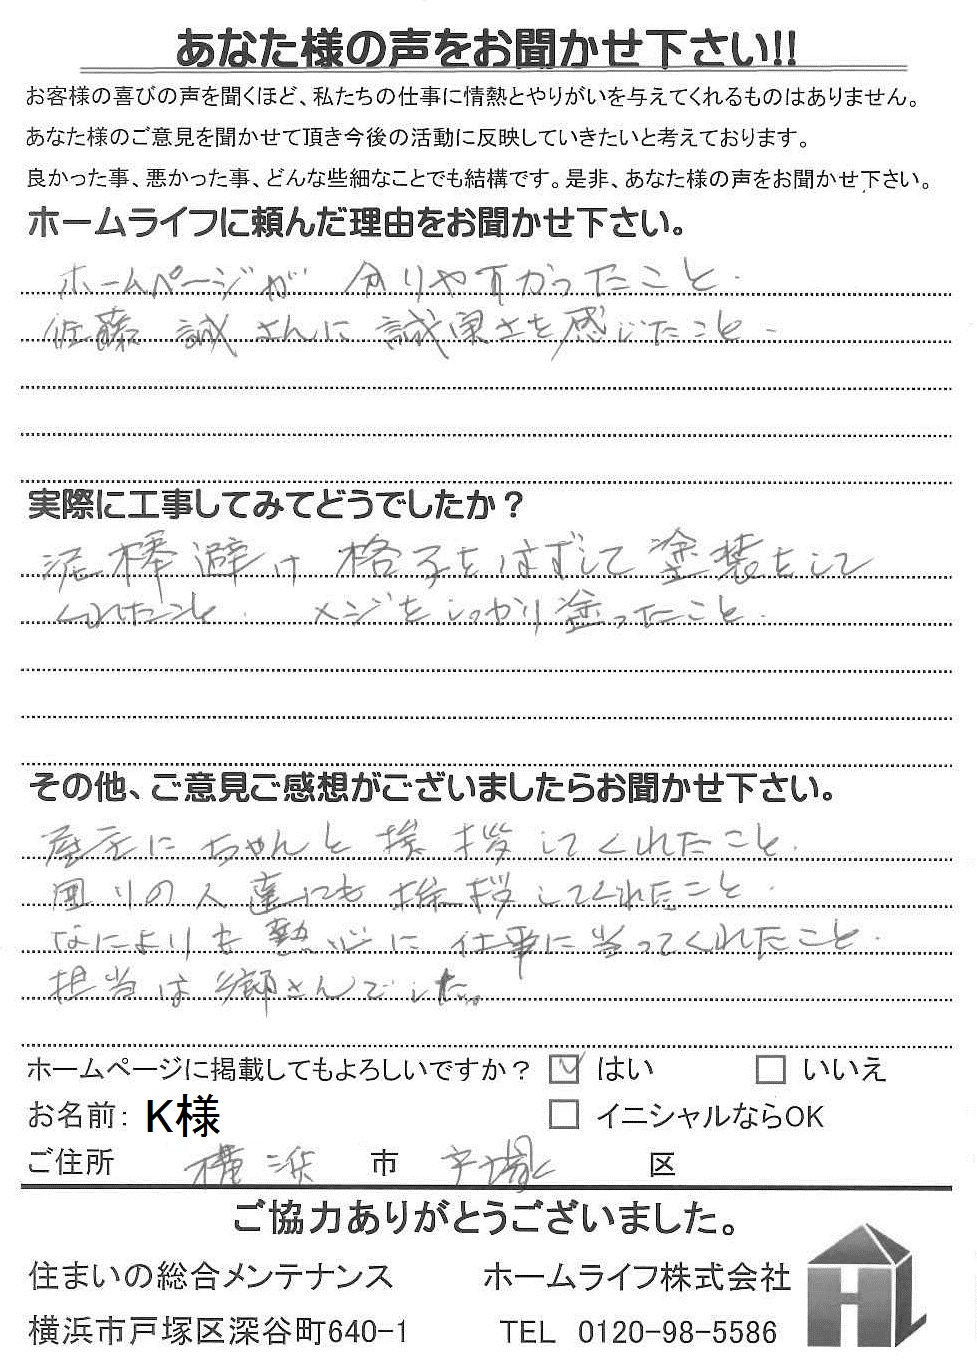 あなた様の声をお聞かせ下さい!!
お客様の喜びの声を聞くほど、私たちの仕事に情熱とやりがいを与えてくれるものはありません。
あなた様のご意見を聞かせて頂き今後の活動に反映していきたいと考えております。
良かった事、悪かった事、どんな些細なことでも結構です。是非、あなた様の声をお聞かせ下さい。
ホームライフに頼んだ理由をお聞かせ下さい。
ホームページが 分りや耳かったこと.
佐藤 誠さんに 誠実さを感じたこと.
実際に工事してみてどうでしたか?
泥棒避け 格子をはずして塗装をして
くれたこと. メジをしっかり塗ったこと.
その他、ご意見ご感想がございましたらお聞かせ下さい。
にちゃんと挨拶してくれたこと.
回りの人達にも挨拶してくれたこと.
なによりも熱心に仕事に当ってくれたこと.
担当は郷さんでした。
ホームページに掲載してもよろしいですか? ☑ はい □ いいえ
お名前: K様 □ イニシャルならOK
ご住所 横浜 市 戸塚 区
ご協力ありがとうございました。
住まいの総合メンテナンス ホームライフ株式会社
横浜市戸塚区深谷町640-1 TEL 0120-98-5586
HL